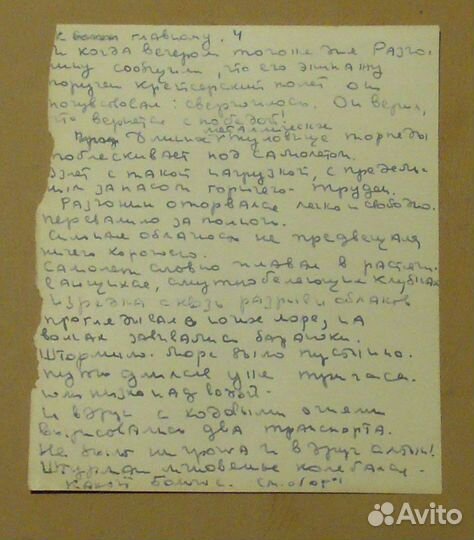 к главному. 4
И когда вечером того же дня Разго-
нину сообщили, что его экипажу
поручен крейсерский полет он
почувствовал: свершилось. Он верил,
что вернется с победой!
металлическое
Длинное туловище торпеды
поблескивает под самолетом.
Взлет с такой нагрузкой, с предель-
ным запасом горючего - труден.
Разгонин оторвался легко и свободно.
перевалило за полночь.
Сильная облачность не предвещала
ничего хорошего.
Самолет словно плавал в
смутно белеющих клубах
изредка сквозь разрывы облаков
проглядывало море, на
волнах завивались барашки.
Штормило. Море было пустынно.
уже три часа.
низко над водой.
И вдруг с ходовыми огнями
вырисовались два транспорта.
Не было ни и вдруг
Штурман мгновенье колебался.
Какой больше. См. обор.
Avito